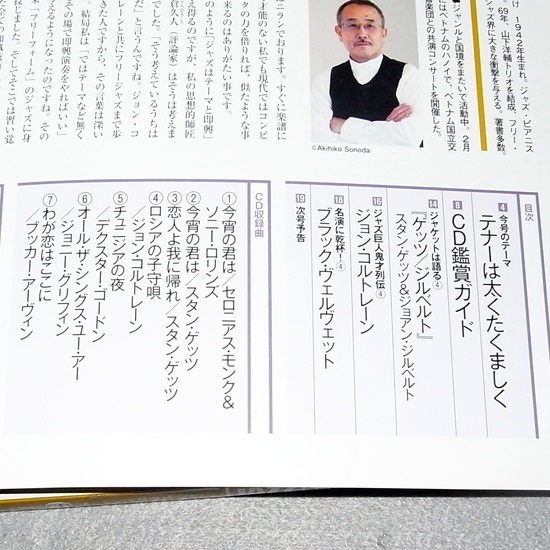 け・1942年生まれ。ジャズ・ピアニス
69年、山下洋輔トリオを結成、フリー・
ジャズ界に大きな衝撃を与える。著書多数。
ジャンルと国境をまたいで活動中。2月
にはベトナムのハノイで、ベトナム国立交
楽団との共演コンサートを開催した。
©Akihiko Sonoda
ニランでおります。すぐに楽譜に
才能のない私でも現代ではコンピ
タの力を借りれば、似たような事
来るのはありがたい事です。
のように「ジャズはテーマと即興」
え得るのですが、私の思想的師匠
倉久人（評論家）はそうは考えま
でした。「そう考えているうちは
だ」と言うんですね。ジョン・コ
レーンと共にフリージャズまで歩
きた人ですから、その言葉は深い
。結局私は「ではテーマなど無く
その場で即興演奏をやればいい」
る「フリーフォーム」のジャズに身
目次
4 今号のテーマ
テナーは太くたくましく
8 CD鑑賞ガイド
14 ジャケットは語る④
『ゲッツ/ジルベルト』
スタン・ゲッツ&ジョアン・ジルベルト
16 ジャズ巨人鬼才列伝④
ジョン・コルトレーン
18 名演に乾杯!④
ブラック・ヴェルヴェット
19 次号予告
CD収録曲
①今宵の君は/セロニアス・モンク&
ソニー・ロリンズ
②今宵の君は/スタン・ゲッツ
③恋人よ我に帰れ/スタン・ゲッツ
④ロシアの子守唄
/ジョン・コルトレーン
⑤チュニジアの夜
/デクスター・ゴードン
⑥オール・ザ・シングス・ユー・アー
/ジョニー・グリフィン
⑦わが恋はここに
/ブッカー・アーヴィン